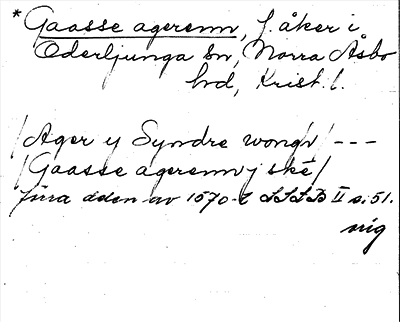 * Gaasse agerenn, f. åker i
Oderljunga sn, Norra Åsbo
hrd, Krist. l.
/Ager y Syndre wongh/ ---
/Gaasse agerenn j ské/
Jura ädan av 1570-t LLLB II s. 51.